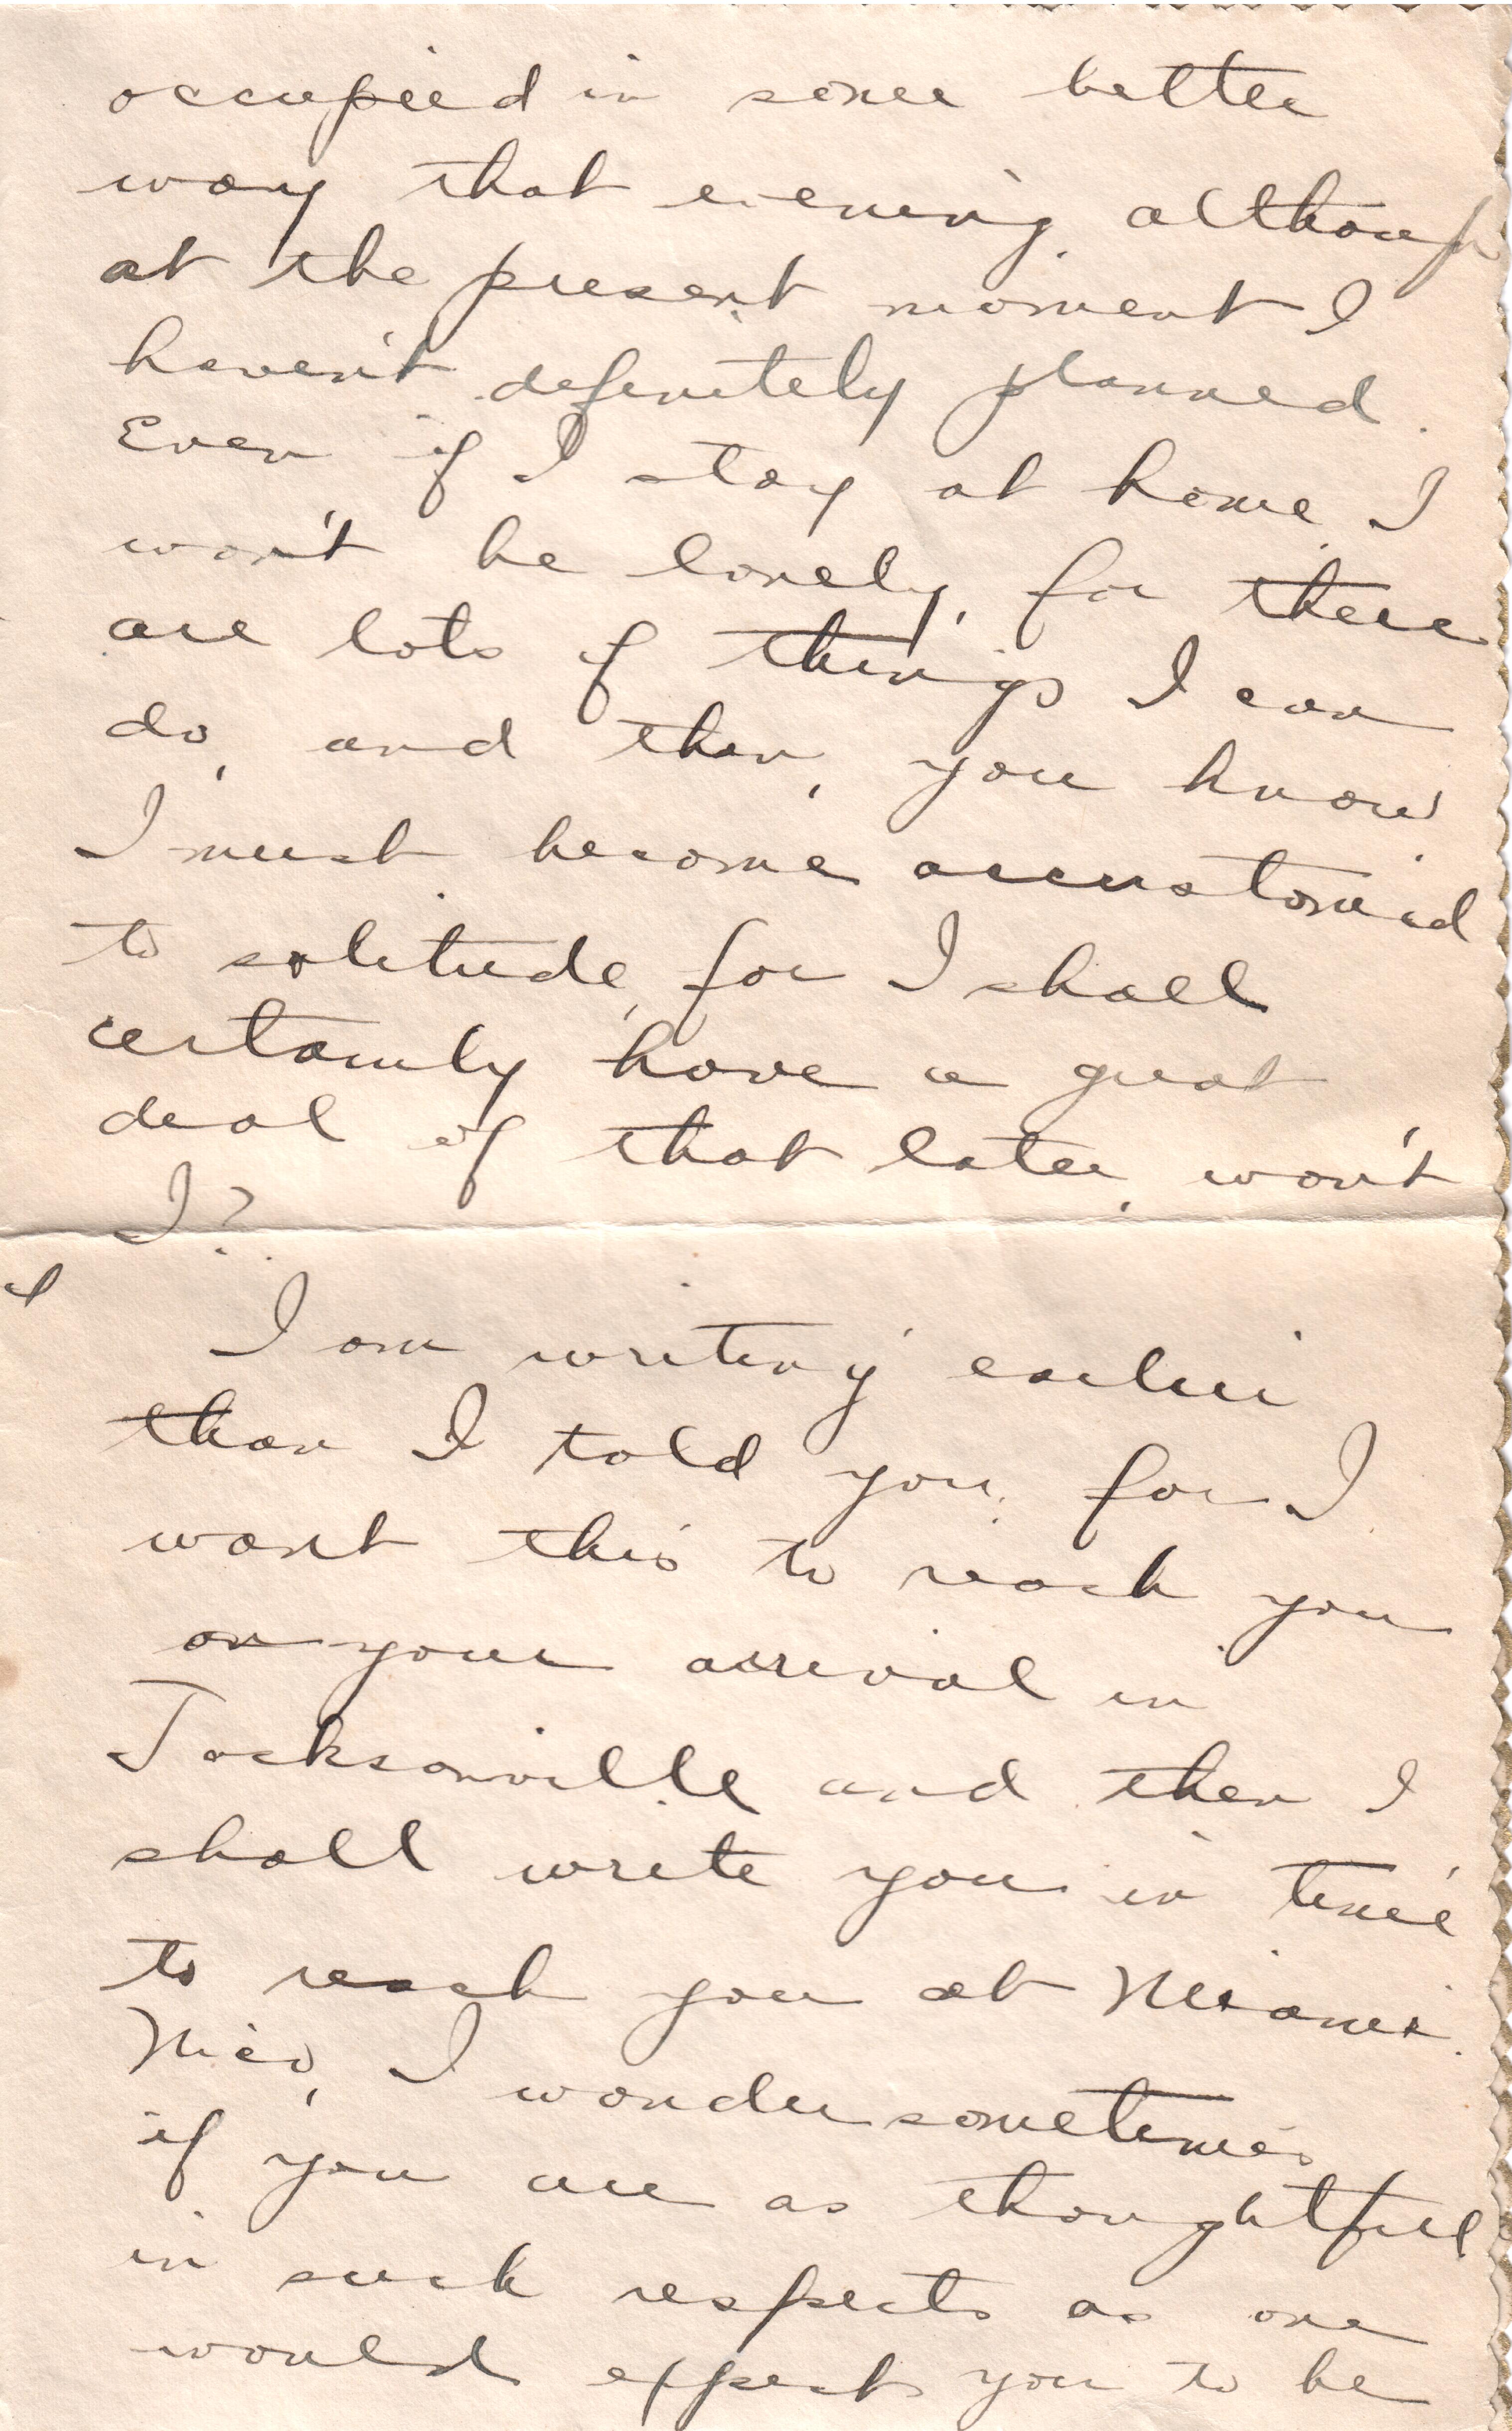 occupied in some better
way that evening, although
at the present moment I
haven't definitely planned.
Even if I stay at home, I
won't be lonely, for there
are lots of things I can
do, and then, you know
I must become accustomed
to solitude, for I shall
certainly have a great
deal of that later, won't
I?
I am writing earlier
than I told you, for I
want this to reach you
on your arrival in
Jacksonville and then I
shall write you in time
to reach you at Miami.
I wonder sometimes
if you are as thoughtful
in such respects as one
would expect you to be